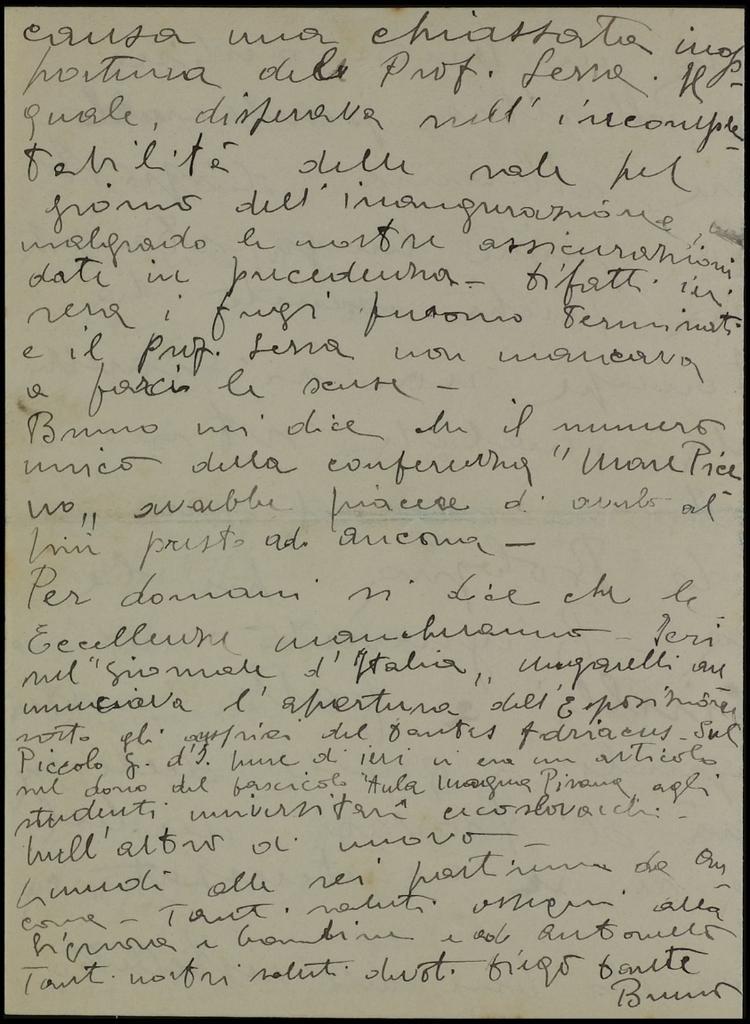 causa una chiassata inop-
portuna del Prof. Serra. Il
quale, disperava nell'incomple-
tabilità delle sale pel
giorno dell'inaugurazione,
malgrado le nostre assicurazioni
date in precedenza - Difatti ieri
sera i fregi furono terminati
e il Prof. Serra non mancava
a farci le scuse -
Bruno mi dice che il numero
unico della conferenza "Mare Pice
no" avrebbe piacere di averlo al
più presto ad Ancona -
Per domani si dice che le
Eccellenze mancheranno - Ieri
nel "Giornale d'Italia" Ungarelli an
nunciava l'apertura dell'Esposizione
sotto gli auspici del Dantes Adriacus - Sul
Piccolo G. d'I. pure di ieri vi era un articolo
sul dono del fascicolo "Aula Magna Pisana" agli
studenti universitari cecoslovacchi -
Null'altro di nuovo -
Lunedì alle sei partiremo da An
cona - Tanti saluti ossequi alla
Signora e bambine e ad Antonello
Tanti nostri saluti devoti Diego Dante
Bruno